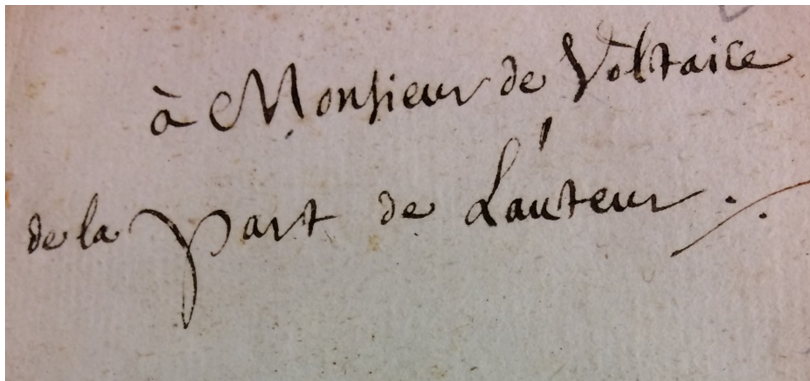 à Monsieur de Voltaire
de la part de L'auteur ./.